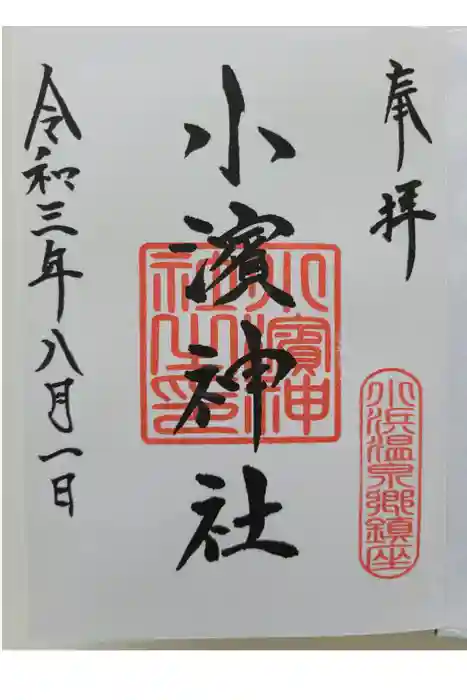 奉拝
小浜温泉郷鎮座
小濱神社
小濱神社之印
令和三年八月一日